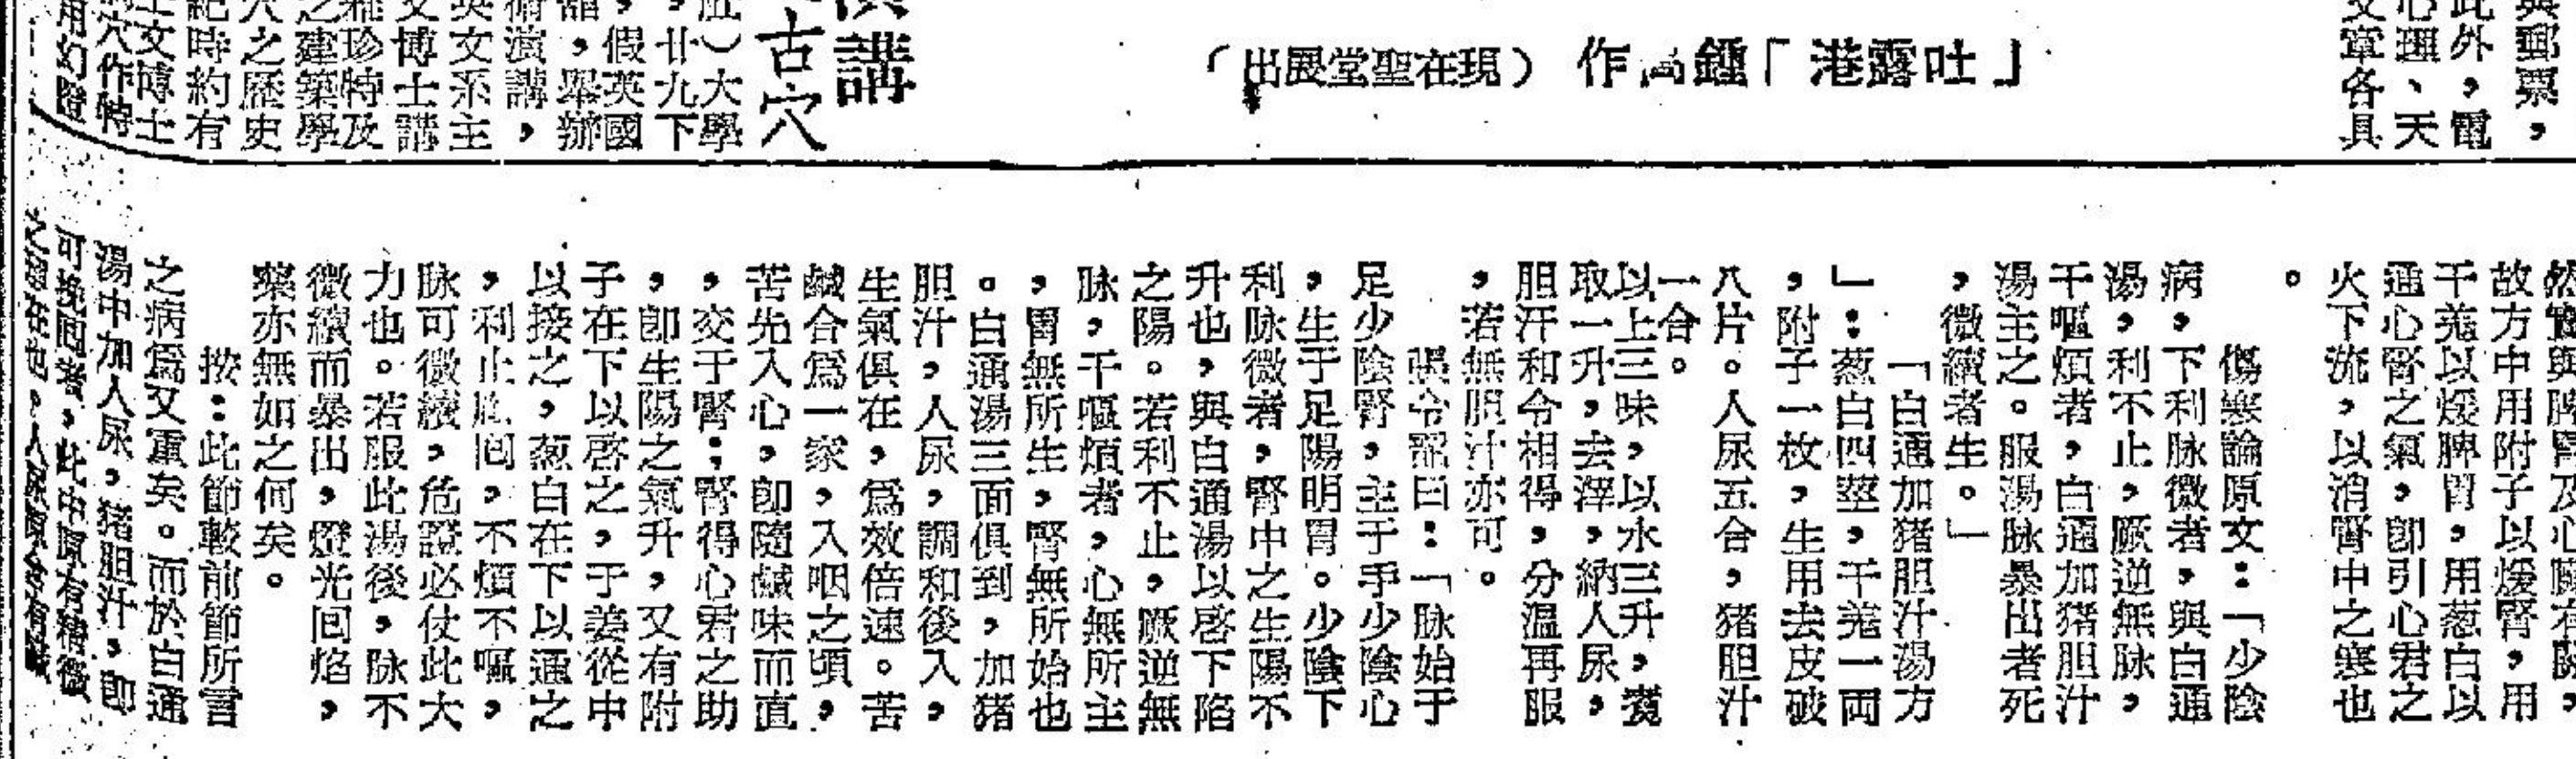 與郵票，
此外，電
心理、天
文章各具
「吐露港」鍾高作（現在聖堂展出）
演講
古穴
）大學
，廿九下
，假英國
，舉辦
術演講，
英文系主
文博士講
羅珍特及
之建築學
穴之歷史
紀時約有
文博士
穴作特
用幻燈
然實與脾腎及心臟有關，
故方中用附子以煖腎，用
干羗以煖脾胃，用葱白以
通心腎之氣，卽引心君之
火下流，以消腎中之寒也
。
傷寒論原文：「少陰
病，下利脉微者，與白通
湯，利不止，厥逆無脉，
干嘔煩者，白通加猪胆汁
湯主之。服湯脉暴出者死
，微續者生。」
「白通加猪胆汁湯方
」：葱白四莖，干羗一両
，附子一枚，生用去皮破
八片。人尿五合，猪胆汁
一合。
以上三味，以水三升，煑
取一升，去滓，納人尿，
胆汗和令相得，分溫再服
，若無胆汁亦可。
張令韶曰：「脉始于
足少陰腎，主于手少陰心
，生于足陽明胃。少陰下
利脉微者，腎中之生陽不
升也，與白通湯以啓下陷
之陽。若利不止，厥逆無
脉，干嘔煩者，心無所主
，胃無所生，腎無所始也
。白通湯三面俱到，加猪
胆汁，人尿，調和後入，
生氣俱在，爲效倍速。苦
鹹合爲一家，入咽之頃，
苦先入心，卽隨鹹味而直
，交于腎：腎得心君之助
，卽生陽之氣升，又有附
子在下以啓之，于姜從中
以接之，葱白在下以通之
，利止厥囘，不煩不嘔，
脉可微續，危證必仗此大
力也。若服此湯後，脉不
微續而暴出，燈光囘焰，
藥亦無如之何矣。
按：此節較前節所言
之病爲又重矣。而於白通
湯中加人尿，猪胆汁，卽
可挽囘者，此中原有精微
之理在也，人尿原含有鹹